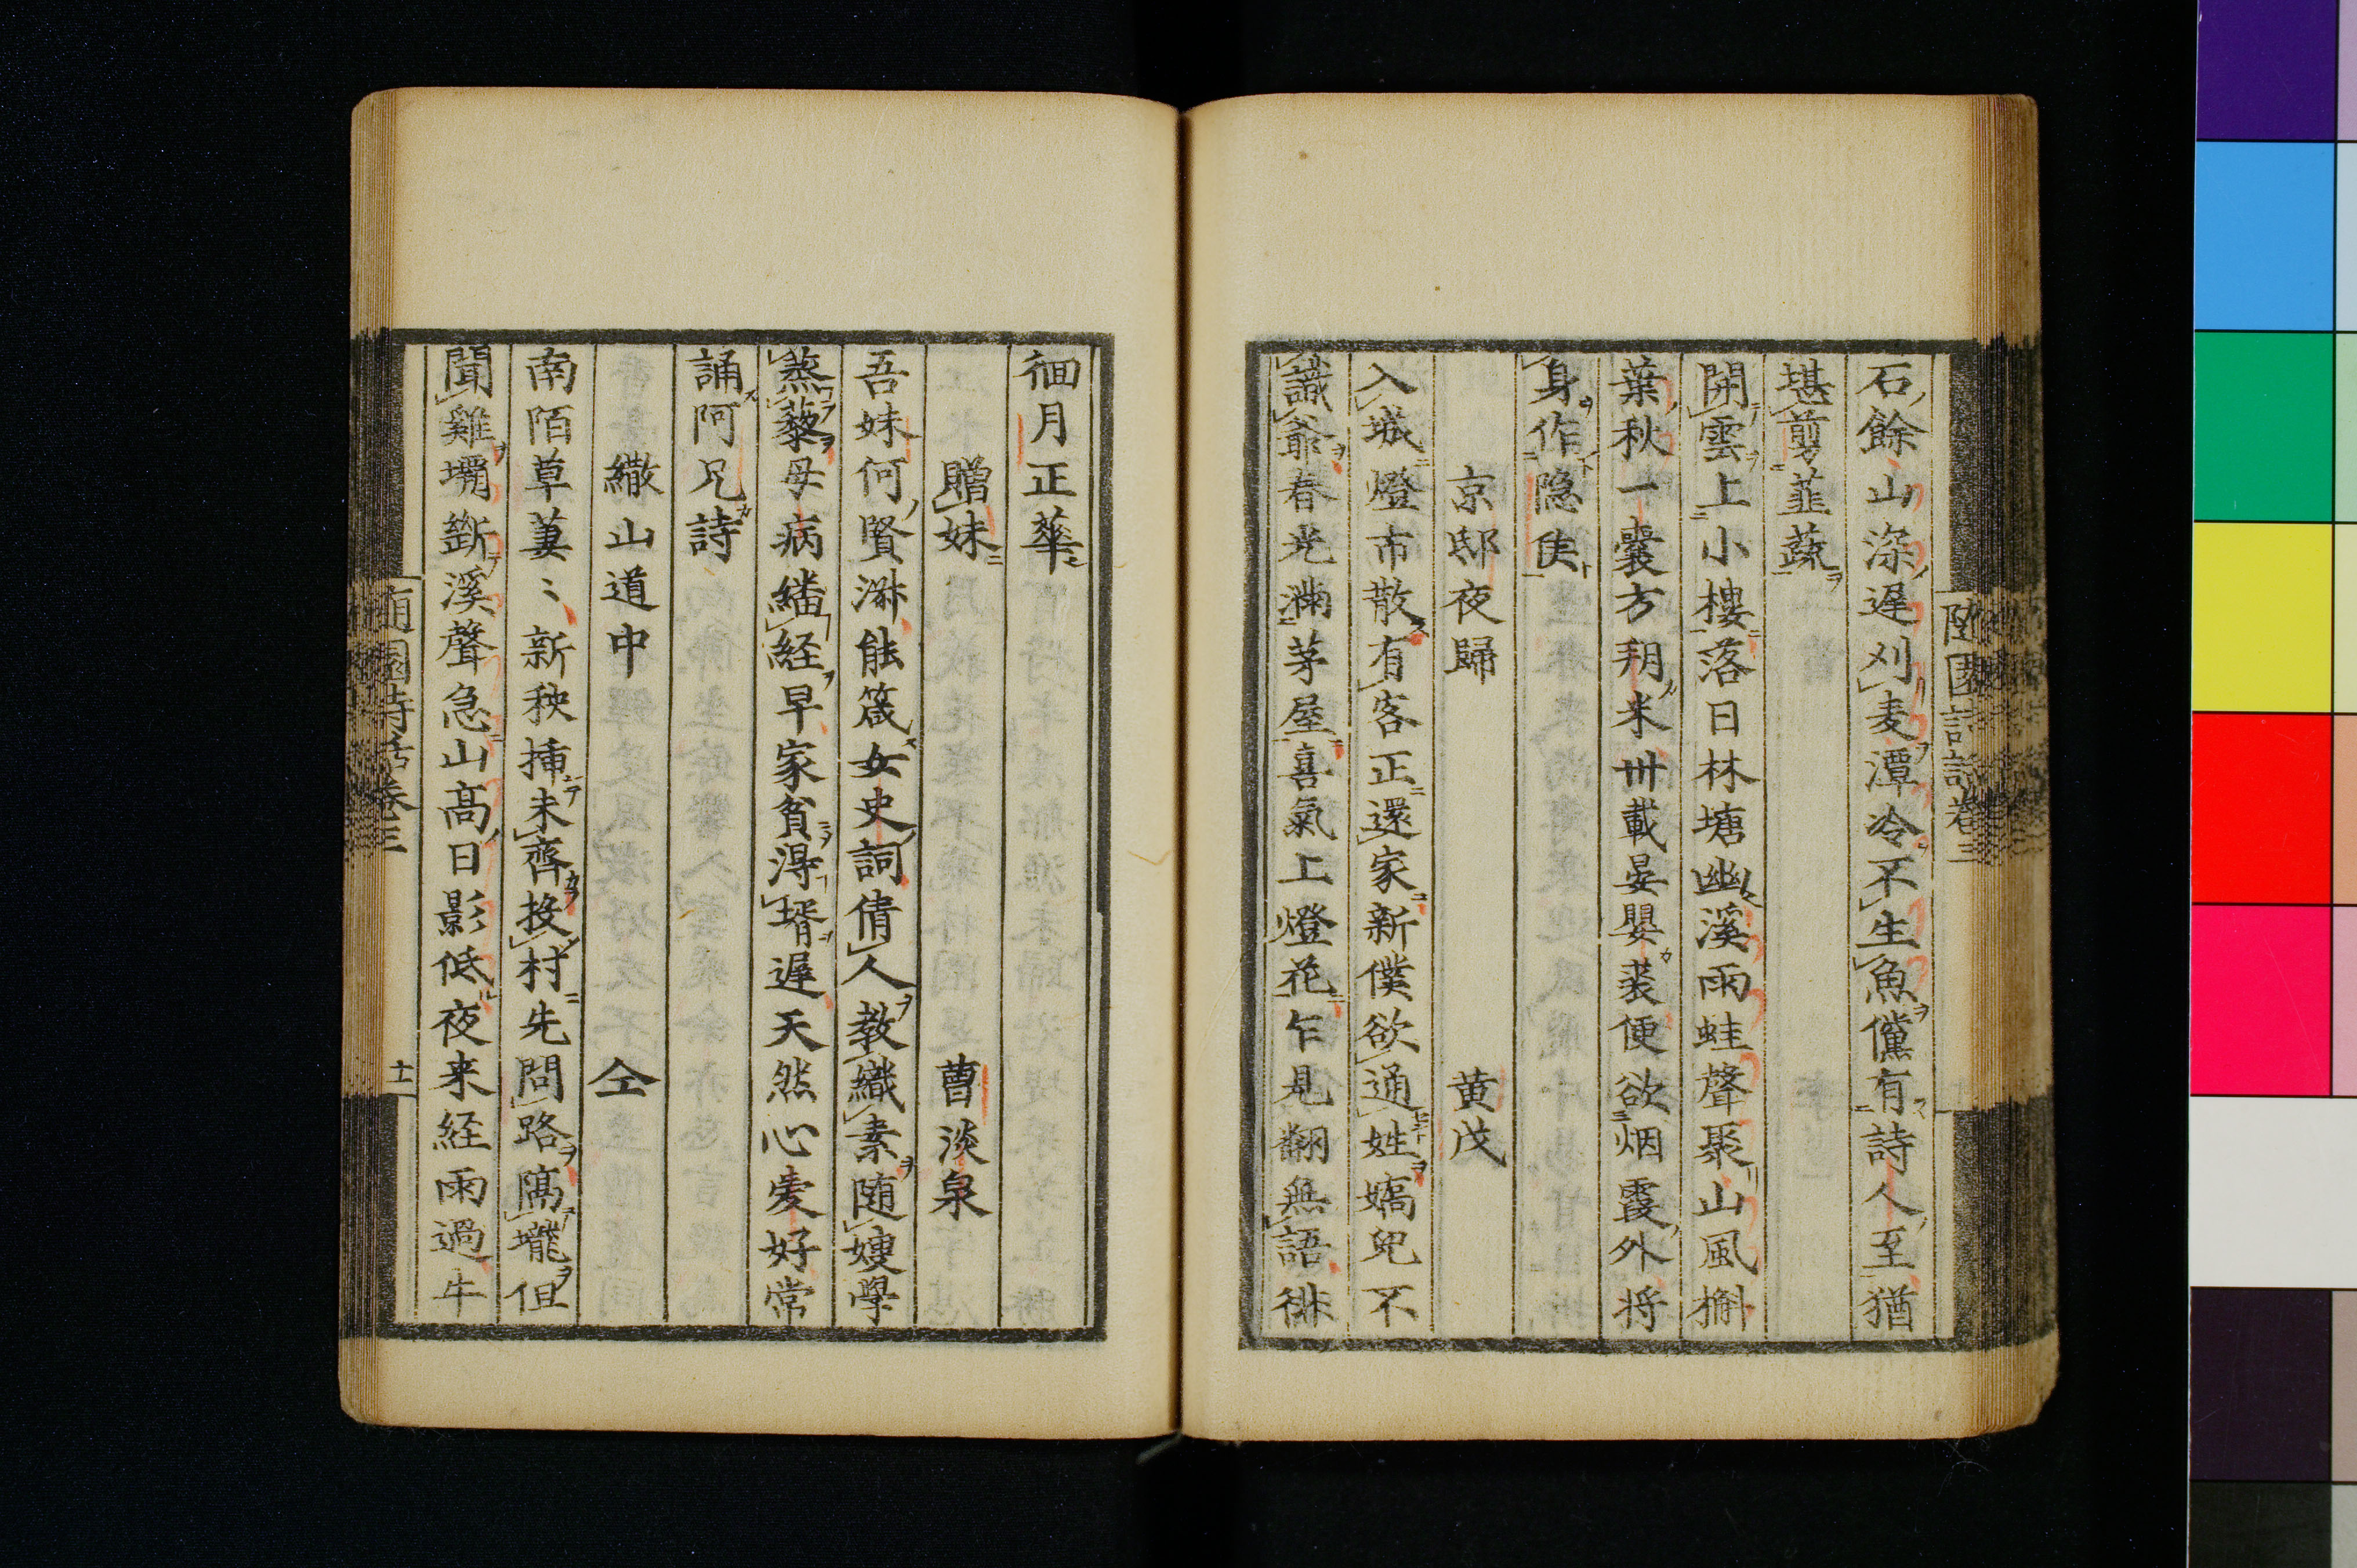 石餘山深遲刈麦潭冷不生魚儻有詩人至猶
堪剪韮蔬
開雲上小樓落日林塘幽溪雨蛙聲聚山風槲
葉秋一囊方朔米卅載晏嬰裘便欲烟霞外将
身作隠侯
京邸夜歸　黄茂
入城燈市散有客正還家新僕欲通姓嬌兒不
識爺春光満茅屋喜氣上燈花乍見翻無語徘
徊月正華
贈妹　曹淡泉
吾妹何賢淑能箴女史詞倩人教織素随嫂學
蒸藜母病繙経早家貧得壻遅天然心愛好常
誦阿兄詩
繖山道中　仝
南陌草萋〻新秧挿未齊投村先問路隔壠但
聞雞堋斷溪聲急山高日影低夜来経雨過牛
随園詩話巻三
十一